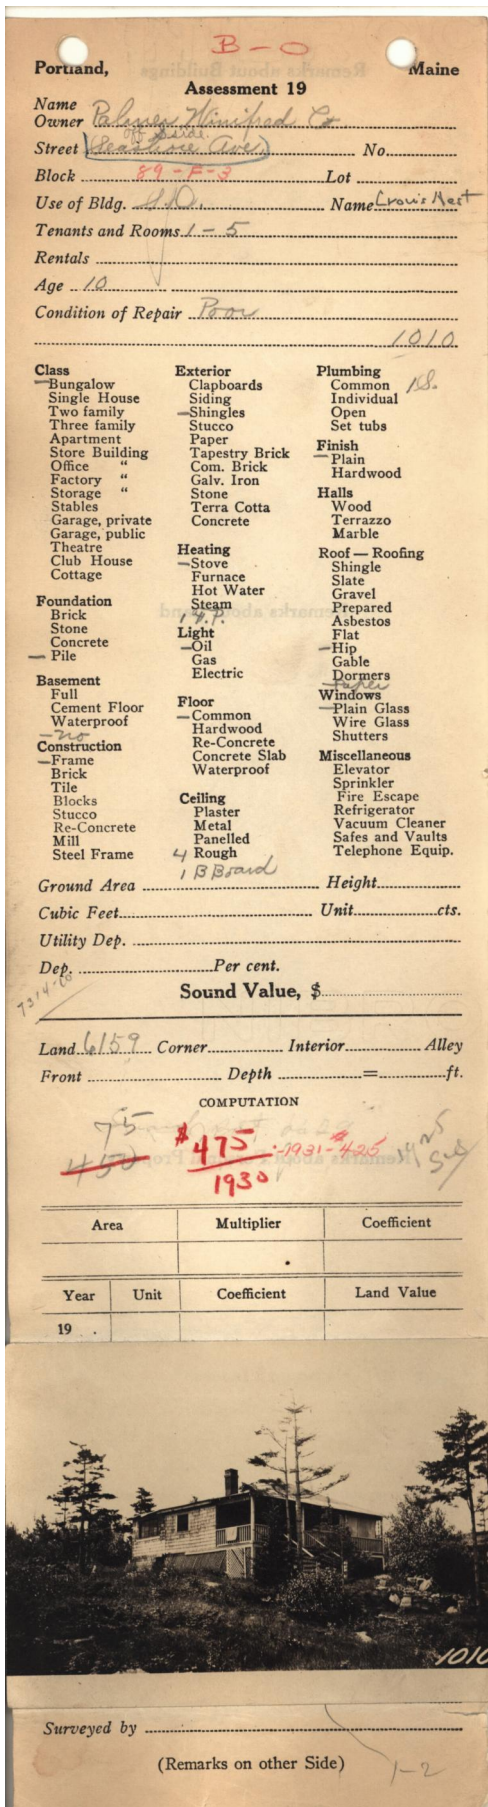 B-0
Portland, Maine
Assessment 19
Name
Owner Palmer Winifred
off side
Street (Seashore Ave) No.
Block 89-F-3 Lot
Use of Bldg. S.D. Name Crow's Nest
Tenants and Rooms 1-5
Rentals
Age 10
Condition of Repair Poor
1010
Class
Bungalow
Single House
Two family
Three family
Apartment
Store Building
Office "
Factory "
Storage "
Stables
Garage, private
Garage, public
Theatre
Club House
Cottage
Foundation
Brick
Stone
Concrete
Pile
Basement
Full
Cement Floor
Waterproof
no
Construction
Frame
Brick
Tile
Blocks
Stucco
Re-Concrete
Mill
Steel Frame
Exterior
Clapboards
Siding
Shingles
Stucco
Paper
Tapestry Brick
Com. Brick
Galv. Iron
Stone
Terra Cotta
Concrete
Heating
Stove
Furnace
Hot Water
Steam
1 F.P.
Light
Oil
Gas
Electric
Floor
Common
Hardwood
Re-Concrete
Concrete Slab
Waterproof
Ceiling
Plaster
Metal
Panelled
4 Rough
1 B Board
Plumbing
Common 1S.
Individual
Open
Set tubs
Finish
Plain
Hardwood
Halls
Wood
Terrazzo
Marble
Roof — Roofing
Shingle
Slate
Gravel
Prepared
Asbestos
Flat
Hip
Gable
Dormers
paper
Windows
Plain Glass
Wire Glass
Shutters
Miscellaneous
Elevator
Sprinkler
Fire Escape
Refrigerator
Vacuum Cleaner
Safes and Vaults
Telephone Equip.
Ground Area Height
Cubic Feet Unit cts.
Utility Dep.
Dep. Per cent.
Sound Value, $
Land 6159 Corner Interior Alley
Front Depth = ft.
COMPUTATION
75
450
$475 -1931-$425
1930
Area Multiplier Coefficient
Year Unit Coefficient Land Value
19
1010
Surveyed by
(Remarks on other Side)
1-2